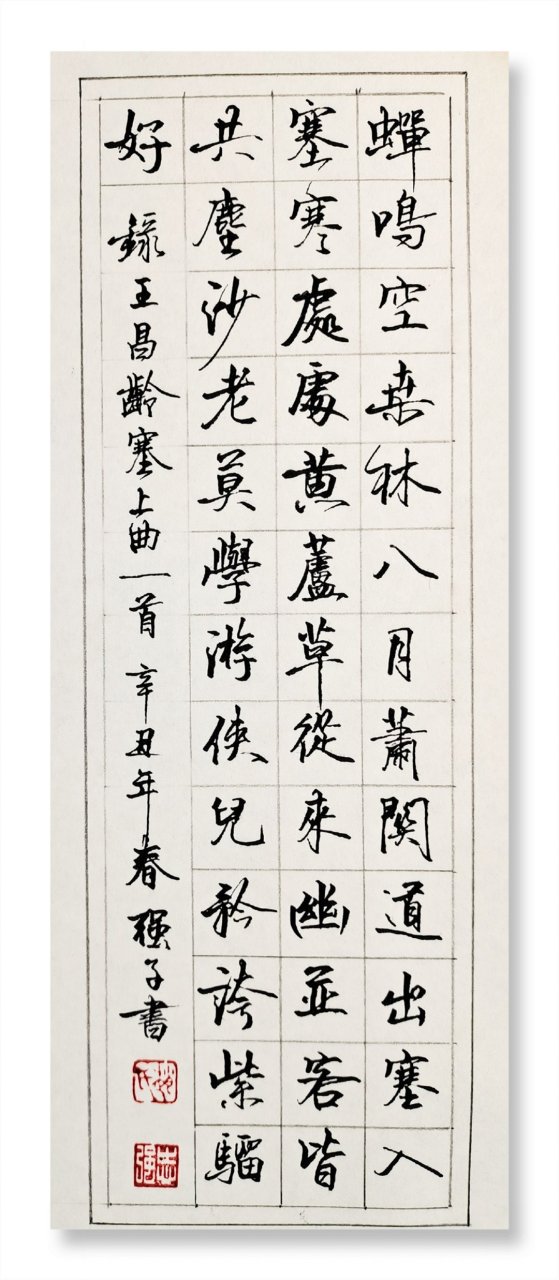 蟬鳴空桒林八月蕭關道出塞入
塞寒處處黃蘆草從來幽並客皆
共塵沙老莫學游俠兒矜誇紫騮
好 錄王昌齡塞上曲一首 辛丑年春 强子書
志强